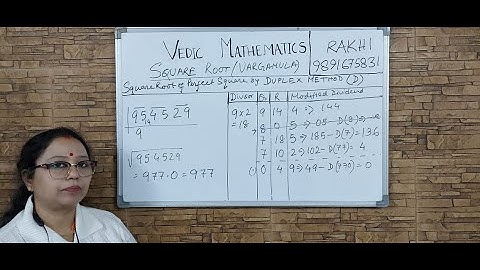 VEDIC MATHEMATICS | RAKHI
SQUARE ROOT/(VARGAMULA) | 9891675831
Square Root of Perfect Square by DUPLEX METHOD (D)
Divisor R. Modified Dividend
9×2 9 14 4 ⇒ 144
= 18
8 0 5 ⇒ 05-D(8)
7 18 5 ⇒ 185-D(7)= 136
7 10 2 ⇒ 102-D(77)= 4
0 4 9 ⇒ 49-D(770)= 0
95 45 29
9
√954529
= 977.0 = 977